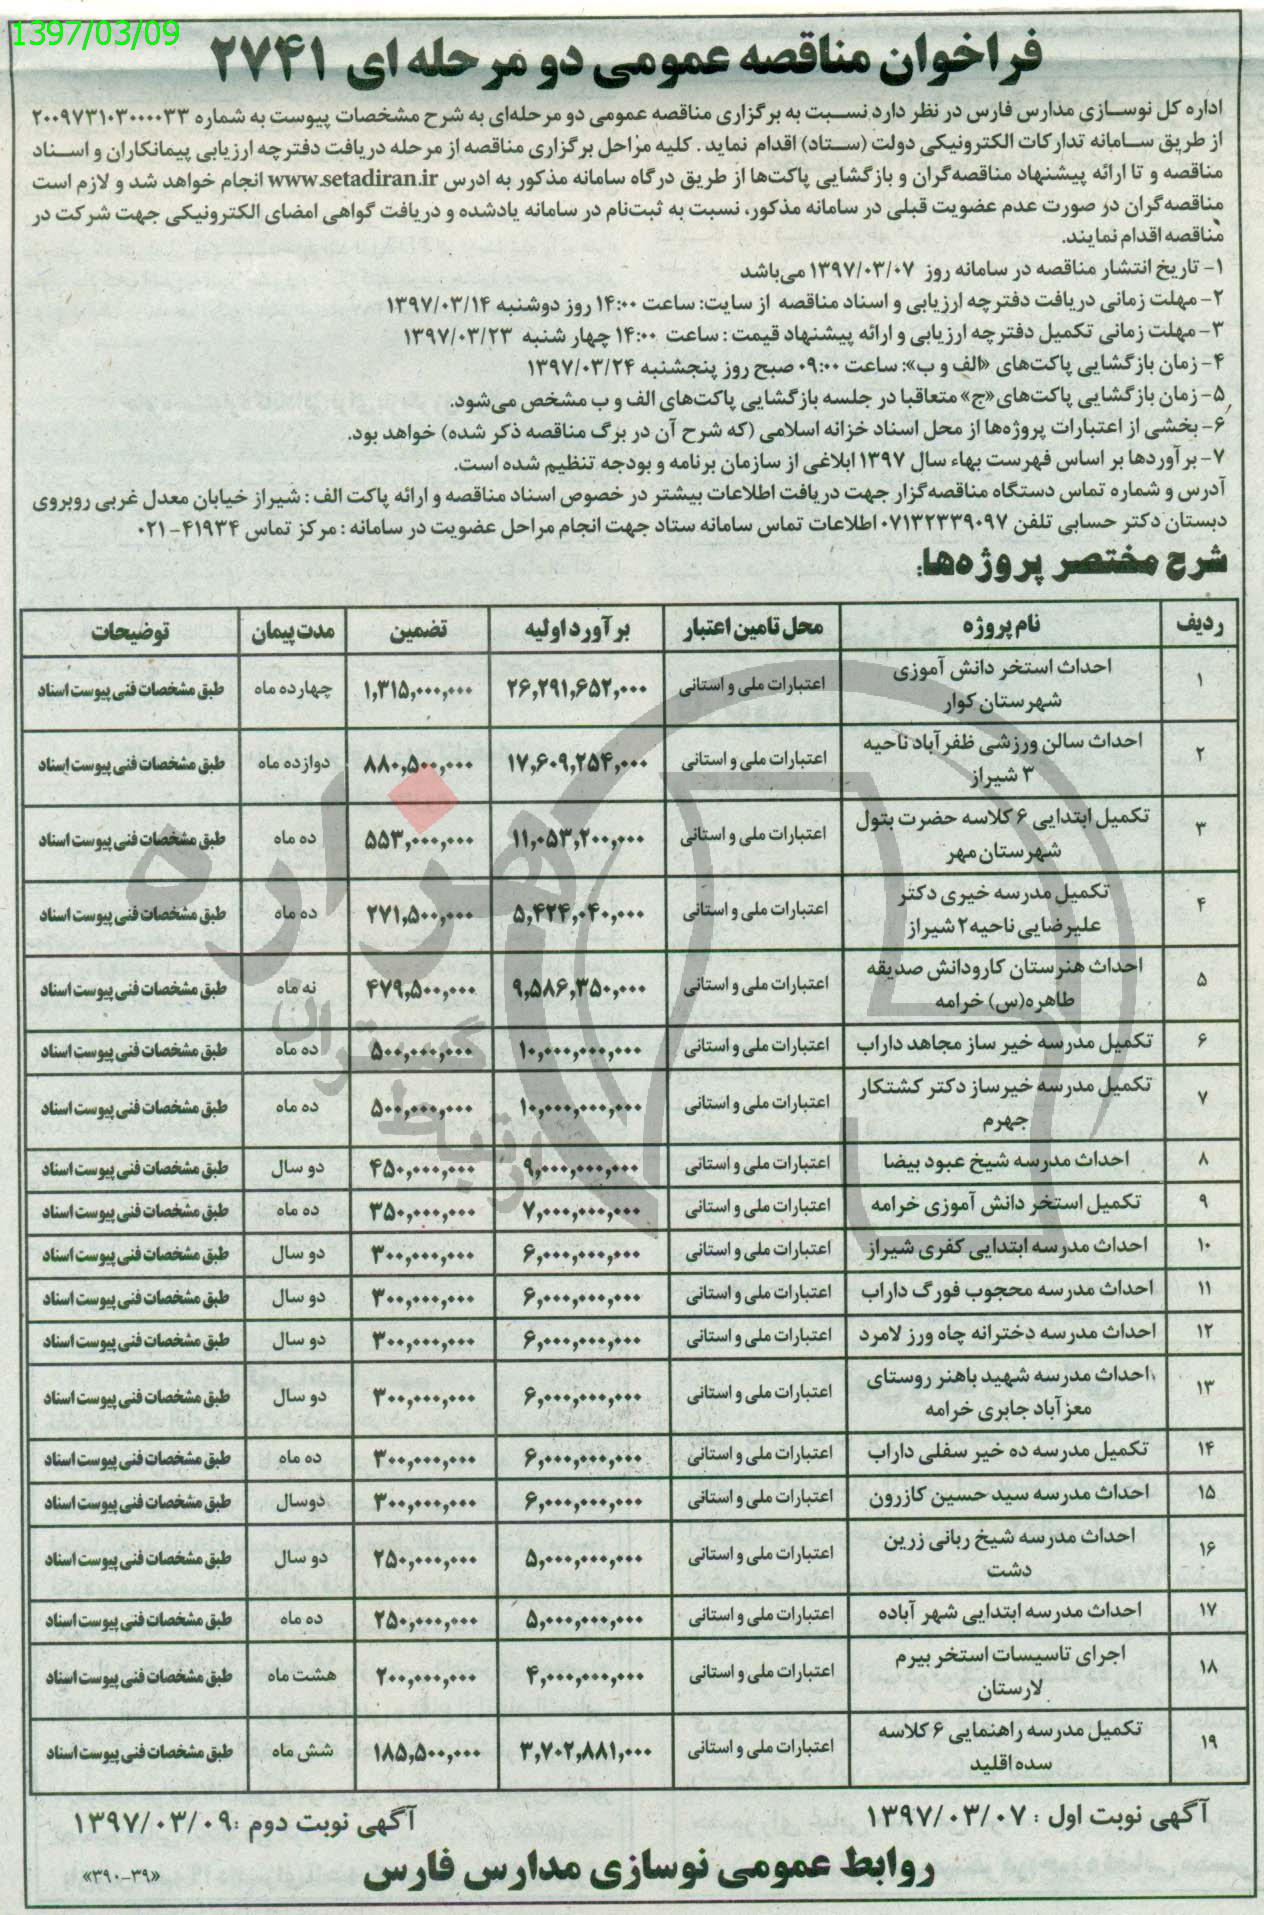 1397/03/09
فراخوان مناقصه عمومی دو مرحله ای ۲۷۴۱
اداره کل نوسازی مدارس فارس در نظر دارد نسبت به برگزاری مناقصه عمومی دو مرحله‌ای به شرح مشخصات پیوست به شماره ۲۰۰۹۷۳۱۰۳۰۰۰۰۳۳
از طریق سامانه تدارکات الکترونیکی دولت (ستاد) اقدام نماید. کلیه مراحل برگزاری مناقصه از مرحله دریافت دفترچه ارزیابی پیمانکاران و اسناد
مناقصه و تا ارائه پیشنهاد مناقصه‌گران و بازگشایی پاکت‌ها از طریق درگاه سامانه مذکور به ادرس www.setadiran.ir انجام خواهد شد و لازم است
مناقصه‌گران در صورت عدم عضویت قبلی در سامانه مذکور، نسبت به ثبت‌نام در سامانه یادشده و دریافت گواهی امضای الکترونیکی جهت شرکت در
مناقصه اقدام نمایند.
۱- تاریخ انتشار مناقصه در سامانه روز ۱۳۹۷/۰۳/۰۷ می‌باشد
۲- مهلت زمانی دریافت دفترچه ارزیابی و اسناد مناقصه از سایت: ساعت ۱۴:۰۰ روز دوشنبه ۱۳۹۷/۰۳/۱۴
۳- مهلت زمانی تکمیل دفترچه ارزیابی و ارائه پیشنهاد قیمت : ساعت ۱۴:۰۰ چهار شنبه ۱۳۹۷/۰۳/۲۳
۴- زمان بازگشایی پاکت‌های «الف و ب»: ساعت ۰۹:۰۰ صبح روز پنجشنبه ۱۳۹۷/۰۳/۲۴
۵- زمان بازگشایی پاکت‌های«ج» متعاقبا در جلسه بازگشایی پاکت‌های الف و ب مشخص می‌شود.
۶- بخشی از اعتبارات پروژه‌ها از محل اسناد خزانه اسلامی (که شرح آن در برگ مناقصه ذکر شده) خواهد بود.
۷- برآوردها بر اساس فهرست بهاء سال ۱۳۹۷ ابلاغی از سازمان برنامه و بودجه تنظیم شده است.
آدرس و شماره تماس دستگاه مناقصه‌گزار جهت دریافت اطلاعات بیشتر در خصوص اسناد مناقصه و ارائه پاکت الف : شیراز خیابان معدل غربی روبروی
دبستان دکتر حسابی تلفن ۰۷۱۳۲۳۳۹۰۹۷ اطلاعات تماس سامانه ستاد جهت انجام مراحل عضویت در سامانه : مرکز تماس ۴۱۹۳۴-۰۲۱
شرح مختصر پروژه‌ها:
ردیف نام پروژه محل تامین اعتبار برآورد اولیه تضمین مدت پیمان توضیحات
۱ احداث استخر دانش آموزی شهرستان کوار اعتبارات ملی و استانی ۲۶,۲۹۱,۶۵۲,۰۰۰ ۱,۳۱۵,۰۰۰,۰۰۰ چهارده ماه طبق مشخصات فنی پیوست اسناد
۲ احداث سالن ورزشی ظفرآباد ناحیه ۳ شیراز اعتبارات ملی و استانی ۱۷,۶۰۹,۲۵۴,۰۰۰ ۸۸۰,۵۰۰,۰۰۰ دوازده ماه طبق مشخصات فنی پیوست اسناد
۳ تکمیل ابتدایی ۶ کلاسه حضرت بتول شهرستان مهر اعتبارات ملی و استانی ۱۱,۰۵۳,۲۰۰,۰۰۰ ۵۵۳,۰۰۰,۰۰۰ ده ماه طبق مشخصات فنی پیوست اسناد
۴ تکمیل مدرسه خیری دکتر علیرضایی ناحیه۲ شیراز اعتبارات ملی و استانی ۵,۴۲۴,۰۴۰,۰۰۰ ۲۷۱,۵۰۰,۰۰۰ ده ماه طبق مشخصات فنی پیوست اسناد
۵ احداث هنرستان کارودانش صدیقه طاهره(س) خرامه اعتبارات ملی و استانی ۹,۵۸۶,۳۵۰,۰۰۰ ۴۷۹,۵۰۰,۰۰۰ نه ماه طبق مشخصات فنی پیوست اسناد
۶ تکمیل مدرسه خیر ساز مجاهد داراب اعتبارات ملی و استانی ۱۰,۰۰۰,۰۰۰,۰۰۰ ۵۰۰,۰۰۰,۰۰۰ ده ماه طبق مشخصات فنی پیوست اسناد
۷ تکمیل مدرسه خیرساز دکتر کشتکار جهرم اعتبارات ملی و استانی ۱۰,۰۰۰,۰۰۰,۰۰۰ ۵۰۰,۰۰۰,۰۰۰ ده ماه طبق مشخصات فنی پیوست اسناد
۸ احداث مدرسه شیخ عبود بیضا اعتبارات ملی و استانی ۹,۰۰۰,۰۰۰,۰۰۰ ۴۵۰,۰۰۰,۰۰۰ دو سال طبق مشخصات فنی پیوست اسناد
۹ تکمیل استخر دانش آموزی خرامه اعتبارات ملی و استانی ۷,۰۰۰,۰۰۰,۰۰۰ ۳۵۰,۰۰۰,۰۰۰ ده ماه طبق مشخصات فنی پیوست اسناد
۱۰ احداث مدرسه ابتدایی کفری شیراز اعتبارات ملی و استانی ۶,۰۰۰,۰۰۰,۰۰۰ ۳۰۰,۰۰۰,۰۰۰ دو سال طبق مشخصات فنی پیوست اسناد
۱۱ احداث مدرسه محجوب فورگ داراب اعتبارات ملی و استانی ۶,۰۰۰,۰۰۰,۰۰۰ ۳۰۰,۰۰۰,۰۰۰ دو سال طبق مشخصات فنی پیوست اسناد
۱۲ احداث مدرسه دخترانه چاه ورز لامرد اعتبارات ملی و استانی ۶,۰۰۰,۰۰۰,۰۰۰ ۳۰۰,۰۰۰,۰۰۰ دو سال طبق مشخصات فنی پیوست اسناد
۱۳ احداث مدرسه شهید باهنر روستای معزآباد جابری خرامه اعتبارات ملی و استانی ۶,۰۰۰,۰۰۰,۰۰۰ ۳۰۰,۰۰۰,۰۰۰ دو سال طبق مشخصات فنی پیوست اسناد
۱۴ تکمیل مدرسه ده خیر سفلی داراب اعتبارات ملی و استانی ۶,۰۰۰,۰۰۰,۰۰۰ ۳۰۰,۰۰۰,۰۰۰ ده ماه طبق مشخصات فنی پیوست اسناد
۱۵ احداث مدرسه سید حسین کازرون اعتبارات ملی و استانی ۶,۰۰۰,۰۰۰,۰۰۰ ۳۰۰,۰۰۰,۰۰۰ دوسال طبق مشخصات فنی پیوست اسناد
۱۶ احداث مدرسه شیخ ربانی زرین دشت اعتبارات ملی و استانی ۵,۰۰۰,۰۰۰,۰۰۰ ۲۵۰,۰۰۰,۰۰۰ دو سال طبق مشخصات فنی پیوست اسناد
۱۷ احداث مدرسه ابتدایی شهر آباده اعتبارات ملی و استانی ۵,۰۰۰,۰۰۰,۰۰۰ ۲۵۰,۰۰۰,۰۰۰ ده ماه طبق مشخصات فنی پیوست اسناد
۱۸ اجرای تاسیسات استخر بیرم لارستان اعتبارات ملی و استانی ۴,۰۰۰,۰۰۰,۰۰۰ ۲۰۰,۰۰۰,۰۰۰ هشت ماه طبق مشخصات فنی پیوست اسناد
۱۹ تکمیل مدرسه راهنمایی ۶ کلاسه سده اقلید اعتبارات ملی و استانی ۳,۷۰۲,۸۸۱,۰۰۰ ۱۸۵,۵۰۰,۰۰۰ شش ماه طبق مشخصات فنی پیوست اسناد
هزاره
گستران
ارتباط
آگهی نوبت اول : ۱۳۹۷/۰۳/۰۷ آگهی نوبت دوم :۱۳۹۷/۰۳/۰۹
روابط عمومی نوسازی مدارس فارس
«۳۹۰-۳۹»